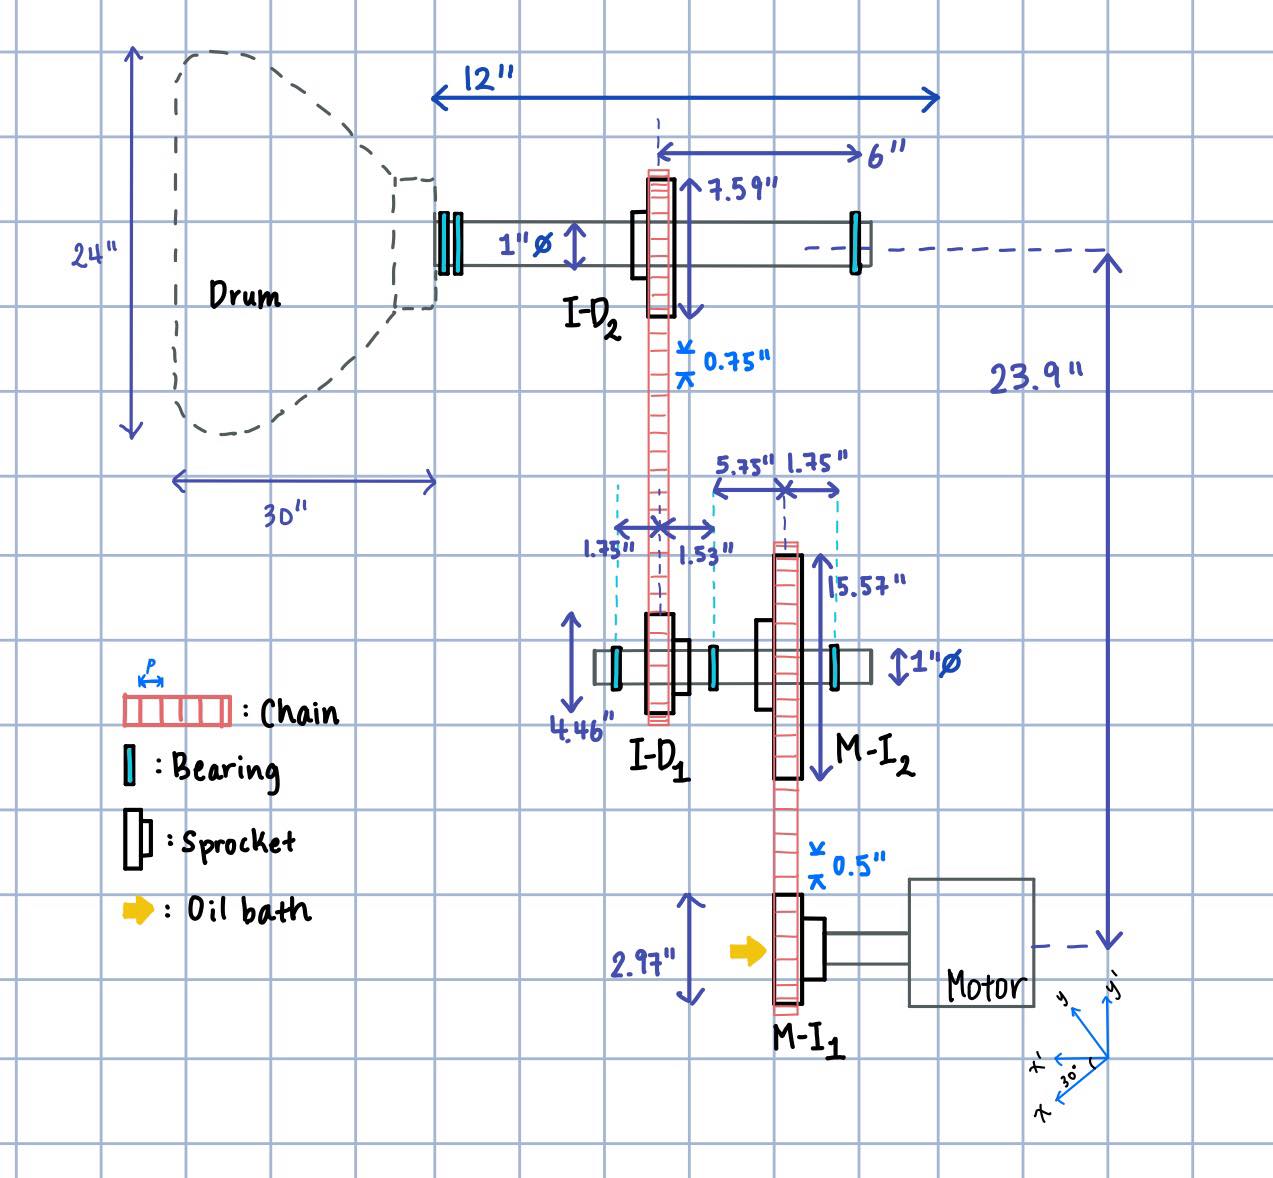 12"
6"
7.59"
24"
1"Ø
Drum
I-D2
0.75"
23.9"
30"
5.75" 1.75"
1.75" 1.53"
15.57"
1"Ø
4.46"
P
: Chain
I-D1
M-I2
: Bearing
: Sprocket
0.5"
: Oil bath
2.97"
Motor
M-I1
y y'
x' 30°
x